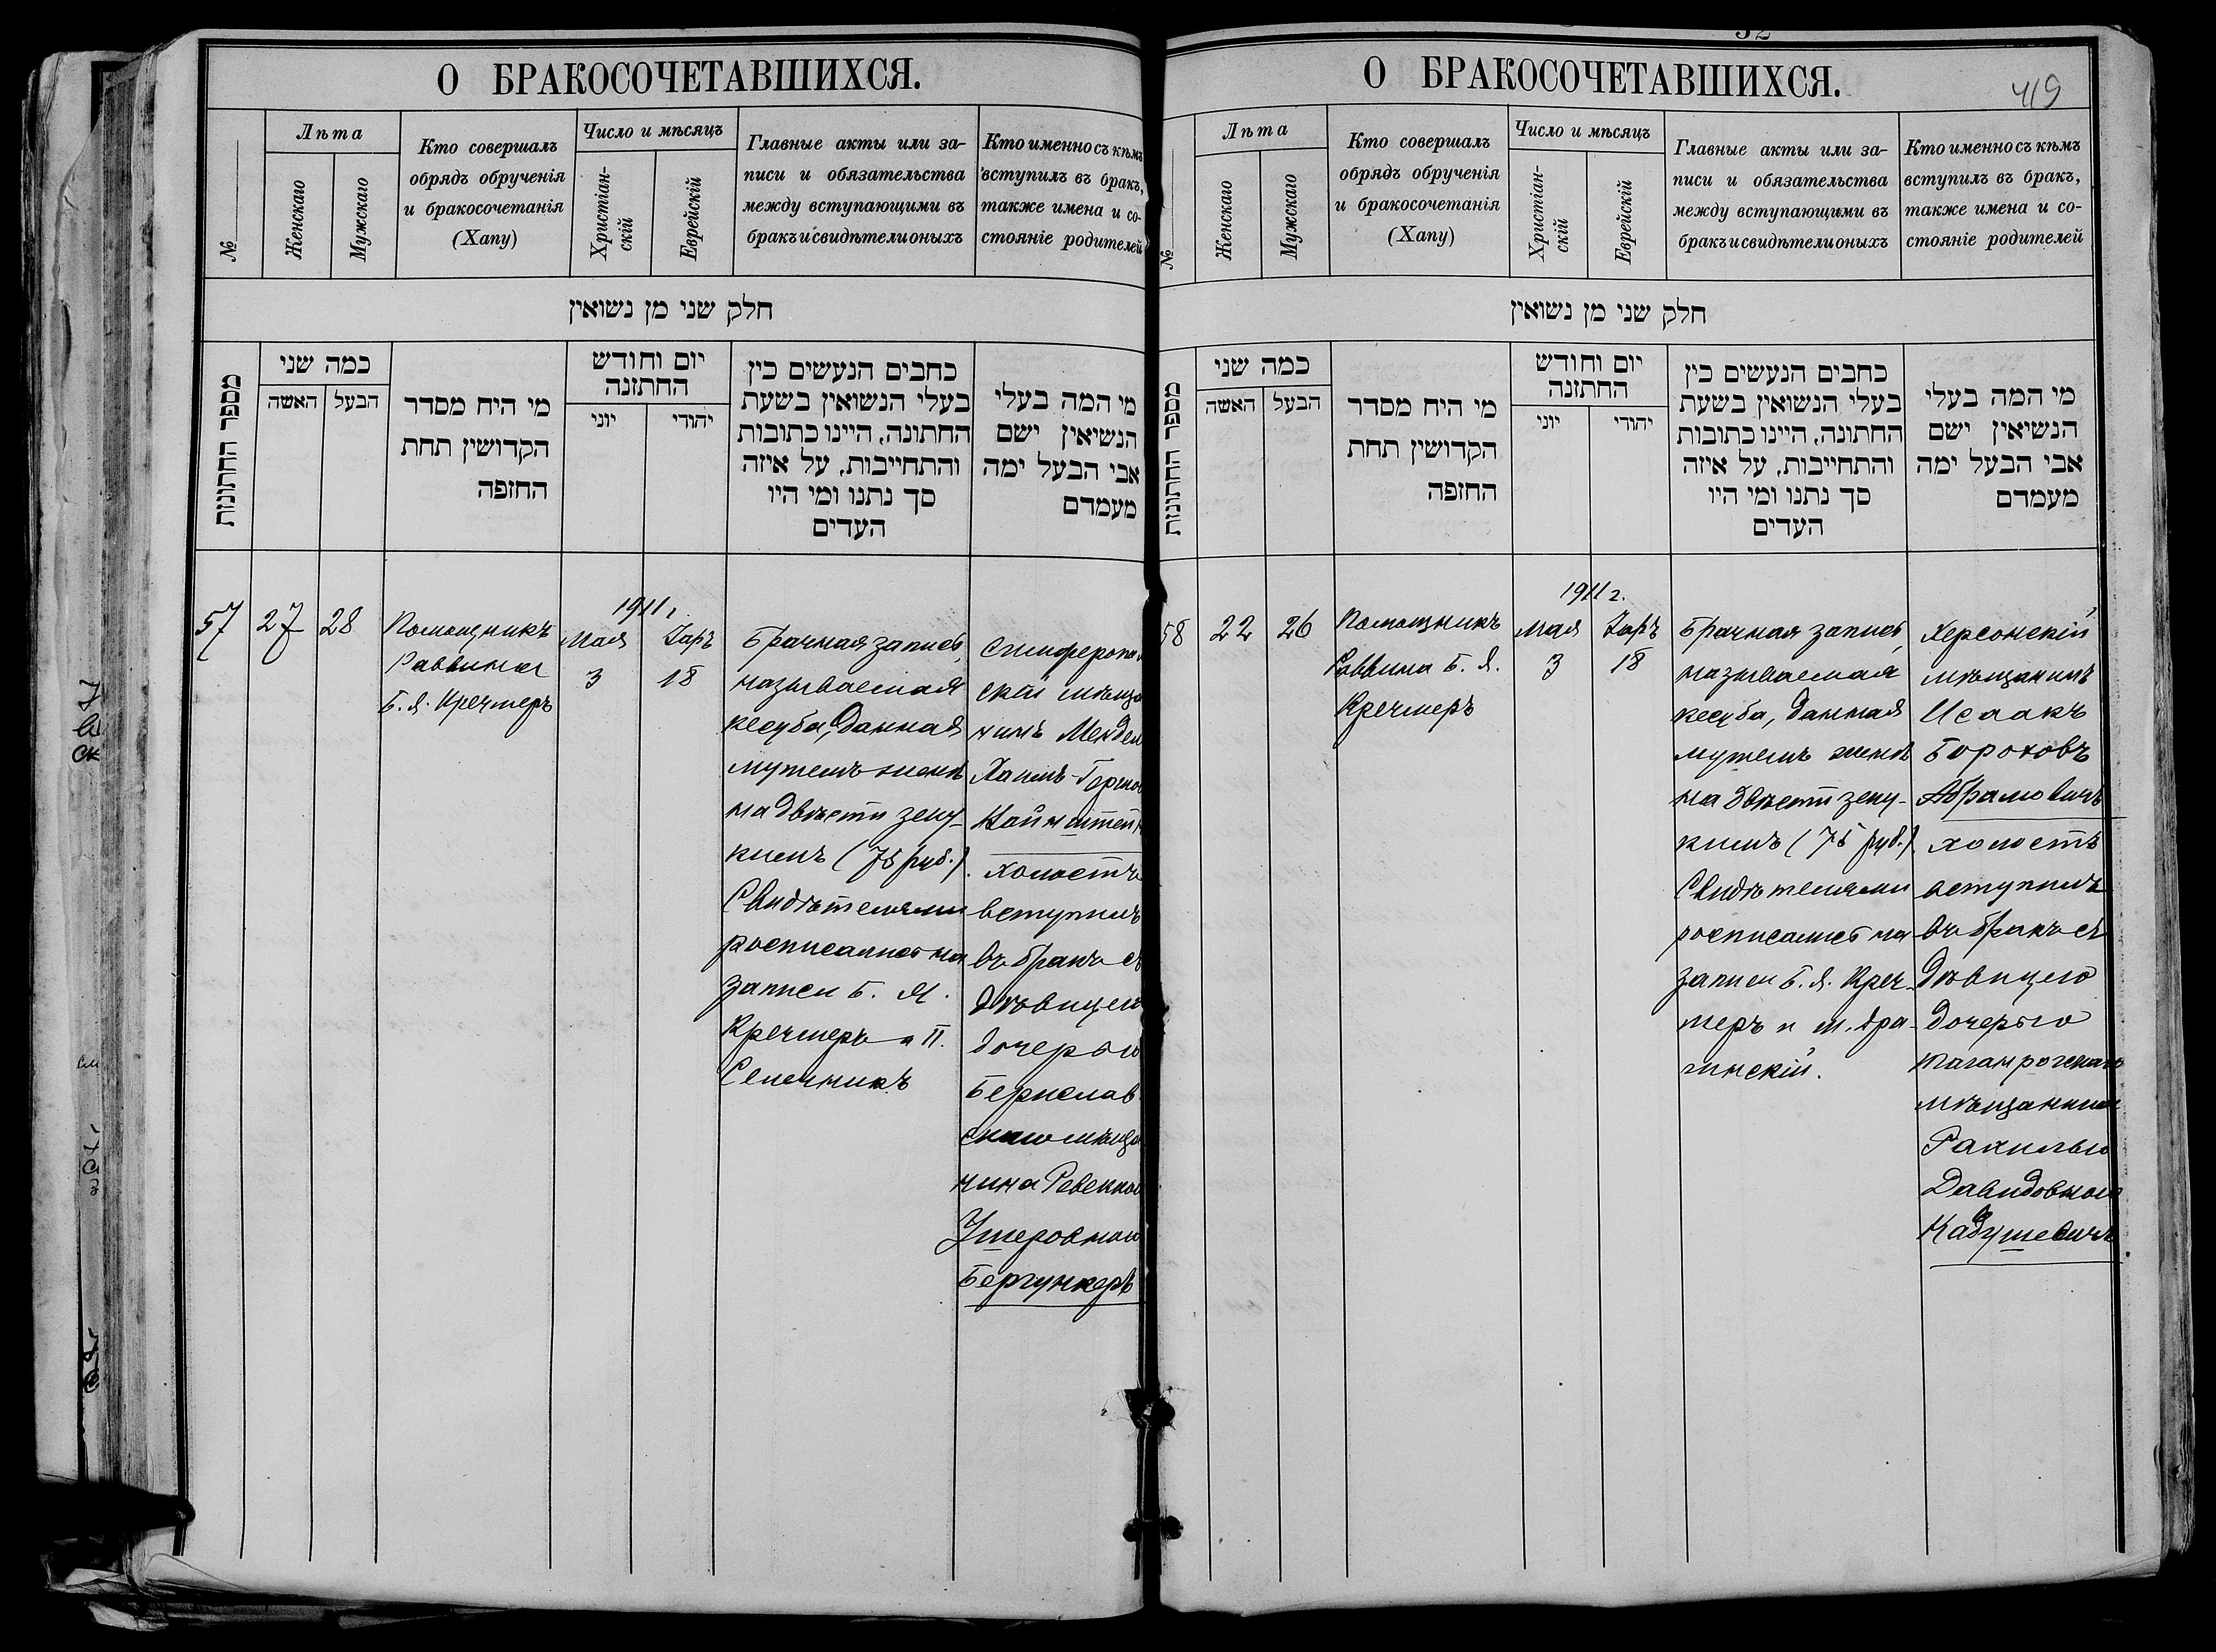 О БРАКОСОЧЕТАВШИХСЯ.
№
Лѣта
Женскаго
Мужскаго
Кто совершалъ
обрядъ обрученія
и бракосочетанія
(Хапу)
Число и мѣсяцъ
Христіан-
скій
Еврейскій
Главные акты или за-
писи и обязательства
между вступающими въ
бракъ и свидѣтели оныхъ
Кто именно съ кѣмъ
вступилъ въ бракъ,
также имена и со-
стояніе родителей
חלק שני מן נשואין
מספר החתונות
כמה שני
האשה
הבעל
מי היח מסדר
הקדושין תחת
החזפה
יום וחודש
החתזנה
יוני
יהודי
כחבים הנעשים כין
בעלי הנשואין בשעת
החתונה, היינו כתובות
והתחייבות, על איזה
סך נתנו ומי היו
העדים
מי המה בעלי
הנשיאין ישם
אבי הבעל ימה
מעמדם
57
27
28
Помощникъ
Раввина
Б. Я. Кречмеръ
1911 г.
Мая
3
Іаръ
18
Брачная запись,
называемая
кесуба, данная
мужемъ женѣ
на двѣсти зеку-
кимъ (75 руб.).
Свидѣтелями
росписались на
записи Б. Я.
Кречмеръ и П.
Сененникъ
Симферополь
скій мѣща
нинъ Мендел
Хаимъ-Гершов
холостъ
вступилъ
въ бракъ съ
дѣвицею
дочерью
Берислав
скаго мѣща
нина Ревеккою
Ушеровною
Бергункеръ
О БРАКОСОЧЕТАВШИХСЯ.
419
№
Лѣта
Женскаго
Мужскаго
Кто совершалъ
обрядъ обрученія
и бракосочетанія
(Хапу)
Число и мѣсяцъ
Христіан-
скій
Еврейскій
Главные акты или за-
писи и обязательства
между вступающими въ
бракъ и свидѣтели оныхъ
Кто именно съ кѣмъ
вступилъ въ бракъ,
также имена и со-
стояніе родителей
חלק שני מן נשואין
מספר החתונות
כמה שני
האשה
הבעל
מי היח מסדר
הקדושין תחת
החזפה
יום וחודש
החתזנה
יוני
יהודי
כחבים הנעשים כין
בעלי הנשואין בשעת
החתונה, היינו כתובות
והתחייבות, על איזה
סך נתנו ומי היו
העדים
מי המה בעלי
הנשיאין ישם
אבי הבעל ימה
מעמדם
58
22
26
Помощникъ
Раввина Б. Я.
Кречмеръ
1911 г.
Мая
3
Іаръ
18
Брачная запись,
называемая
кесуба, данная
мужемъ женѣ
на двѣсти зеку-
кимъ (75 руб.).
Свидѣтелями
росписались на
записи Б. Я. Креч-
меръ и М. Дра-
гинскій.
Херсонскій
мѣщанинъ
Исаакъ
Бороховъ
Абрамовичъ
холостъ
вступилъ
въ бракъ съ
дѣвицею
дочерью
таганрогскаго
мѣщанина
Рахилью
Давидовною
Кадушевичъ